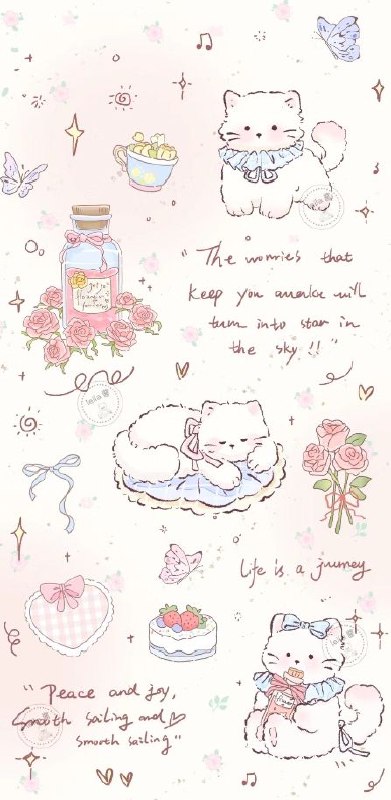 "The worries that
keep you awake will
turn into star in
the sky!!"
Life is a journey
"Peace and joy,
Smooth sailing and
smooth sailing"